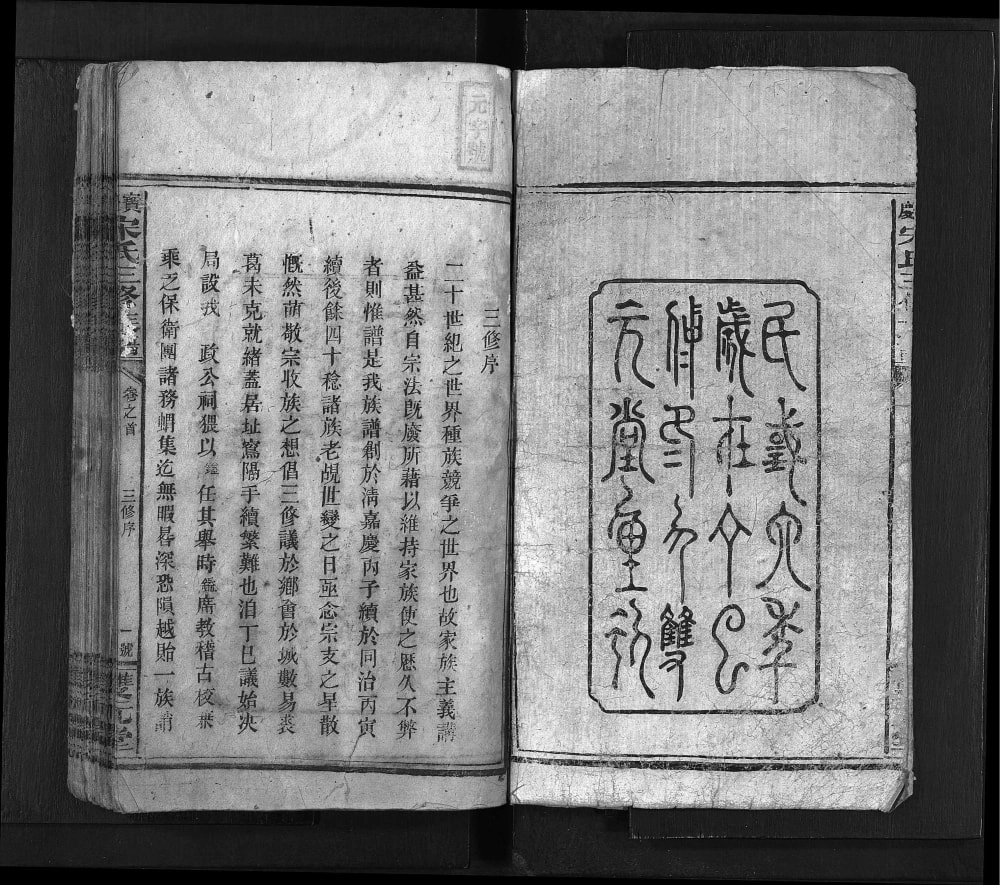 民國六年
歲在丁巳
仲冬月雙
元堂重
元字號
三修序
二十世紀之世界種族競爭之世界也故家族主義講
益甚然自宗法既廢所藉以維持家族使之歷久不弊
者則惟譜是我族譜創於淸嘉慶丙子續於同治丙寅
續後餘四十稔諸族老覘世變之日亟念宗支之早散
慨然萌敬宗收族之想倡三修議於鄉會於城數易裘
葛未克就緒蓋居址窵隔手續繁難也洎丁巳議始決
局設戎　政公祠猥以鑑任其舉時鑑膺教稽古校兼
乘之保衛團諸務蝟集迄無暇晷深恐隕越貽一族誚
宋氏三修
卷之首
三修序
一號
雙元堂